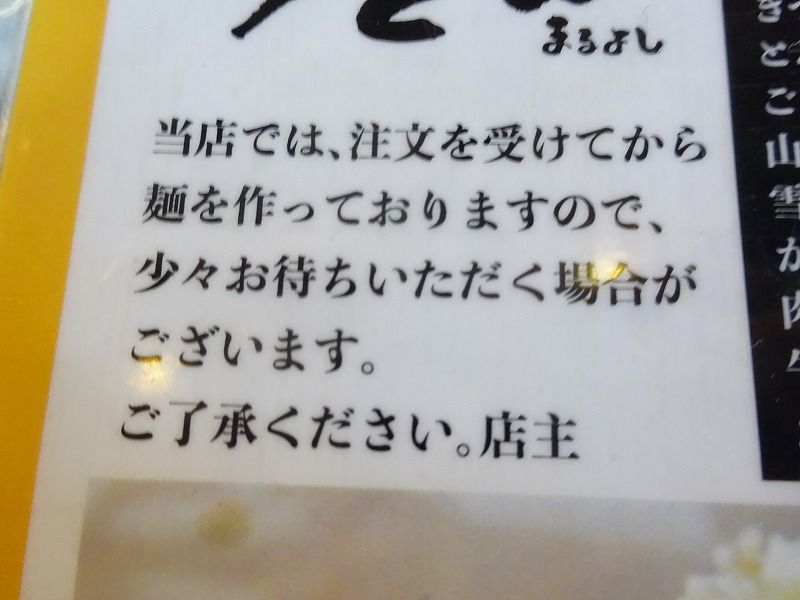 まるよし
当店では、注文を受けてから
麺を作っておりますので、
少々お待ちいただく場合が
ございます。
ご了承ください。店主